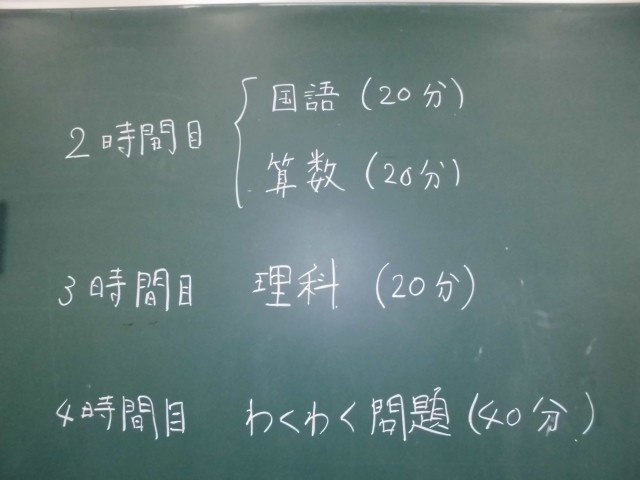 2時間目 国語(20分)
算数(20分)
3時間目 理科(20分)
4時間目 わくわく問題(40分)